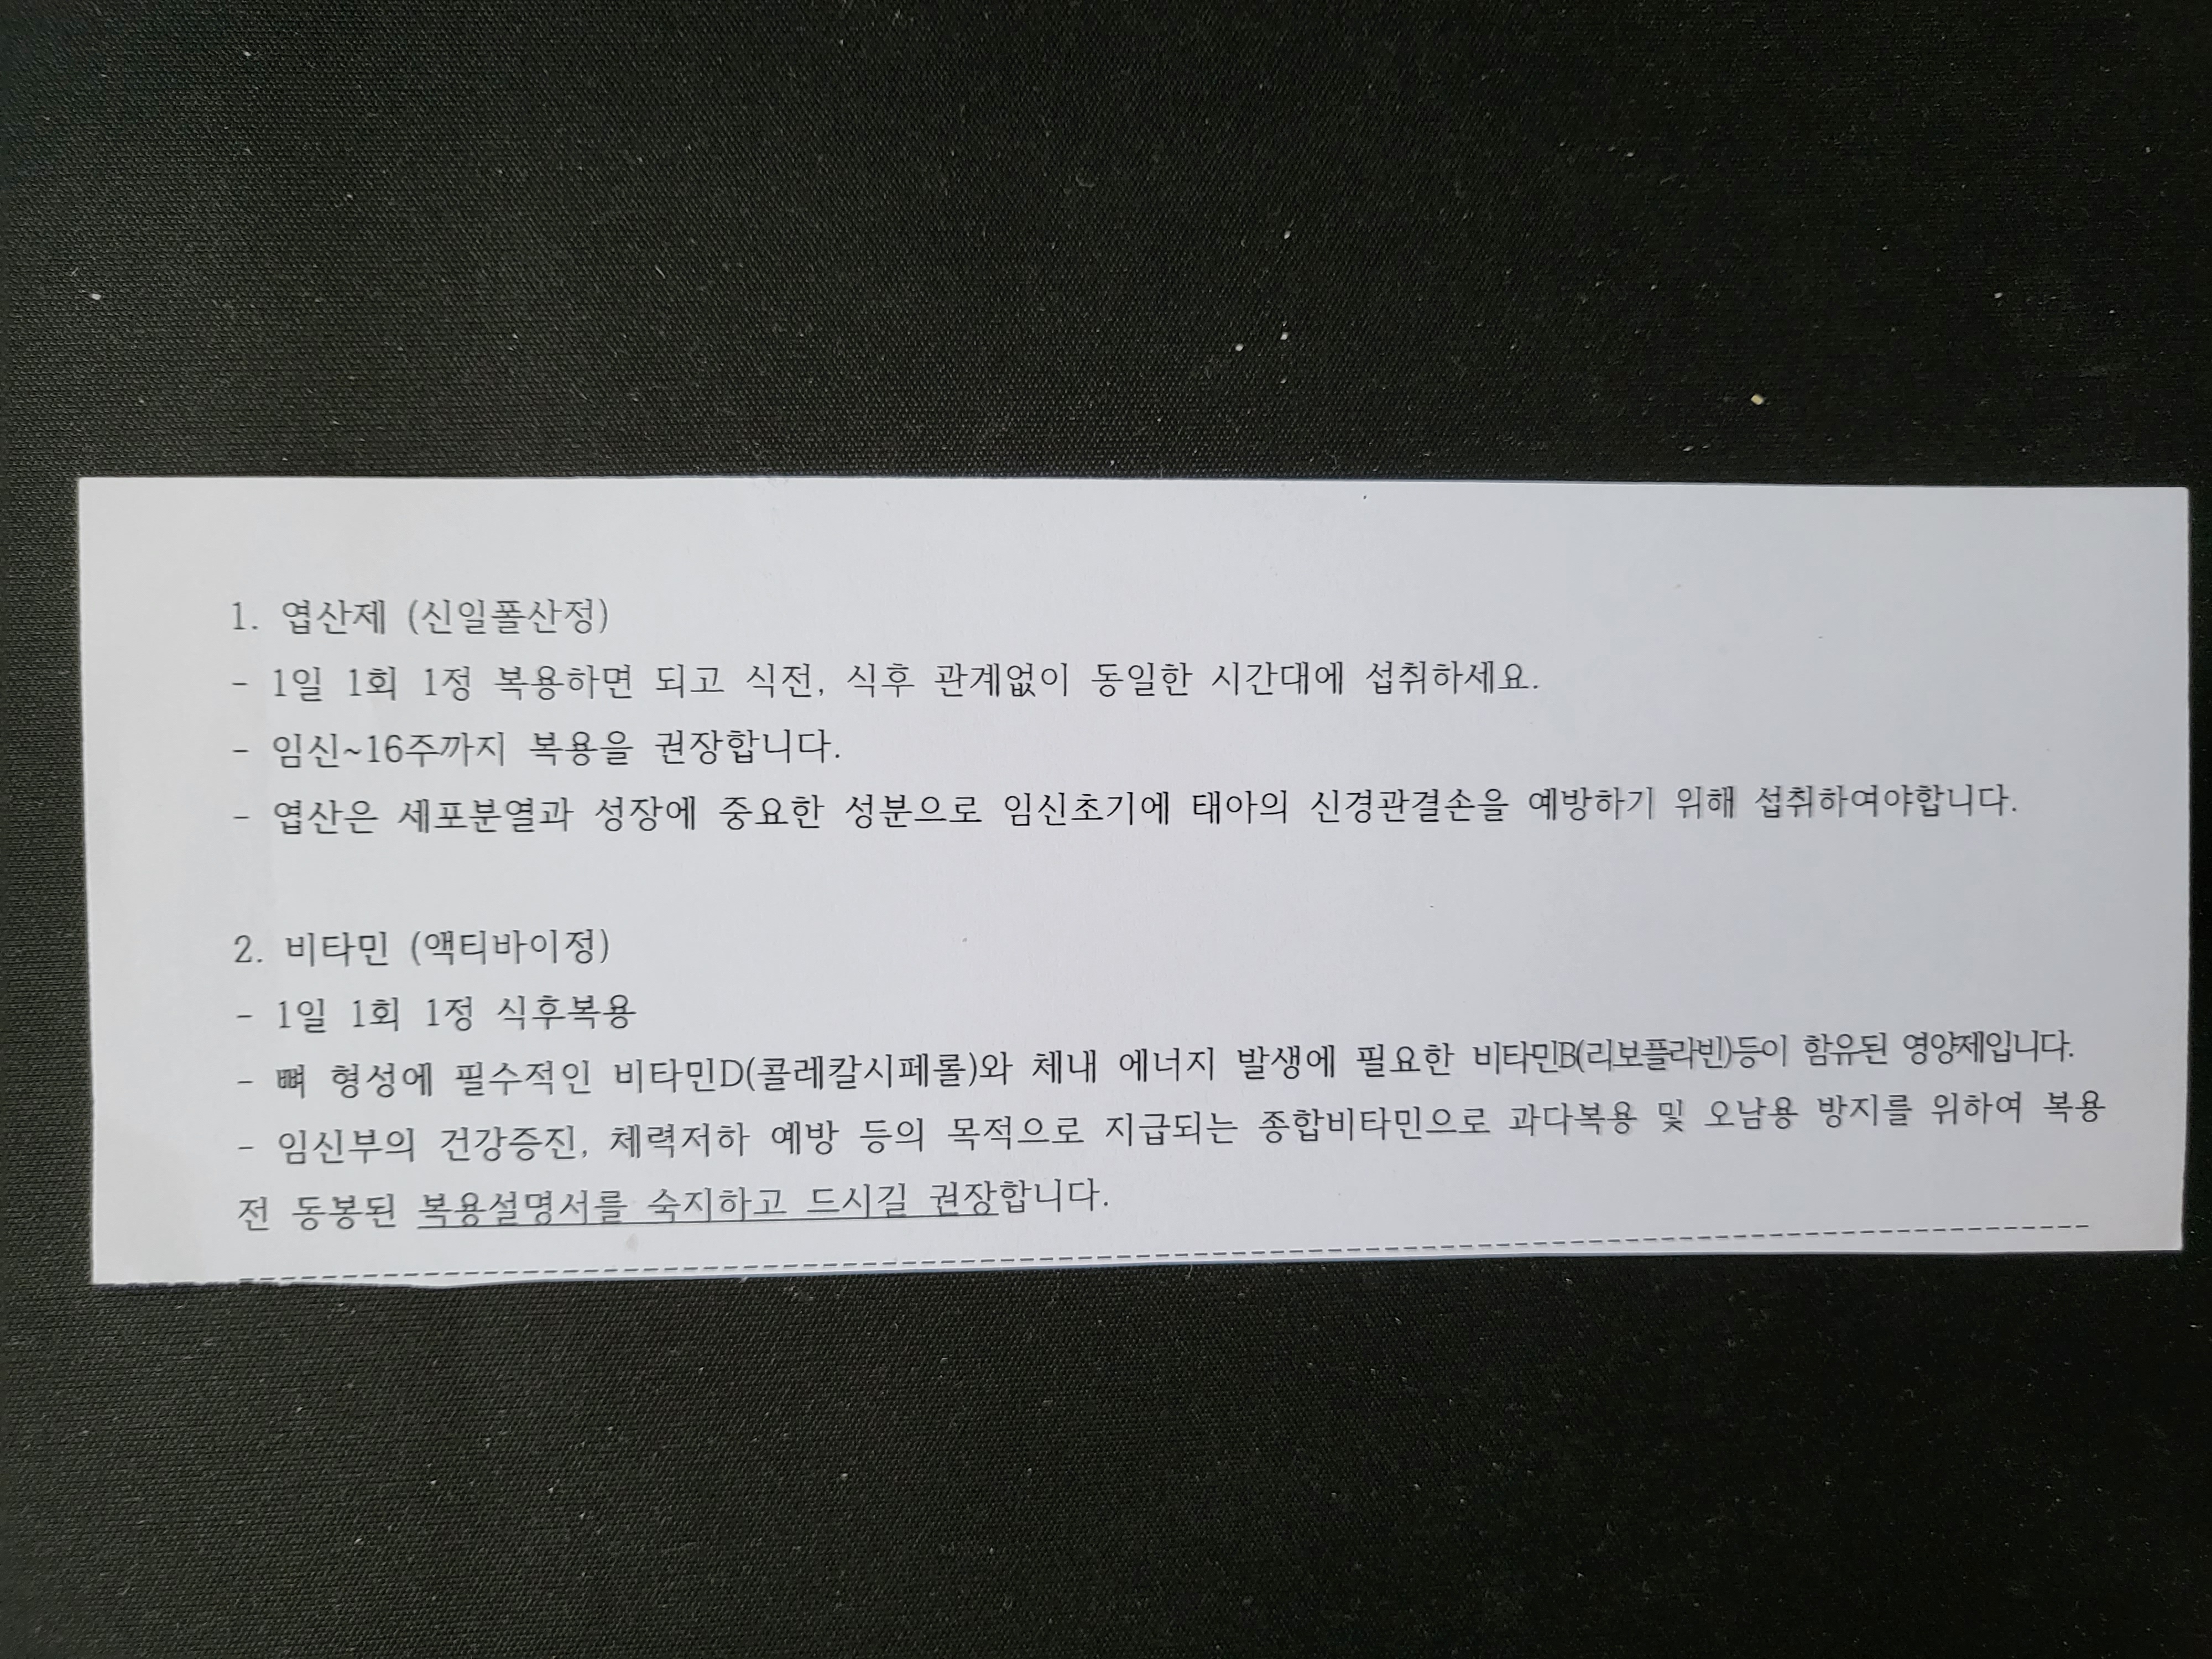 1. 엽산제 (신일폴산정)
- 1일 1회 1정 복용하면 되고 식전, 식후 관계없이 동일한 시간대에 섭취하세요.
- 임신~16주까지 복용을 권장합니다.
- 엽산은 세포분열과 성장에 중요한 성분으로 임신초기에 태아의 신경관결손을 예방하기 위해 섭취하여야합니다.
2. 비타민 (액티바이정)
- 1일 1회 1정 식후복용
- 뼈 형성에 필수적인 비타민D(콜레칼시페롤)와 체내 에너지 발생에 필요한 비타민B(리보플라빈)등이 함유된 영양제입니다.
- 임신부의 건강증진, 체력저하 예방 등의 목적으로 지급되는 종합비타민으로 과다복용 및 오남용 방지를 위하여 복용
전 동봉된 복용설명서를 숙지하고 드시길 권장합니다.